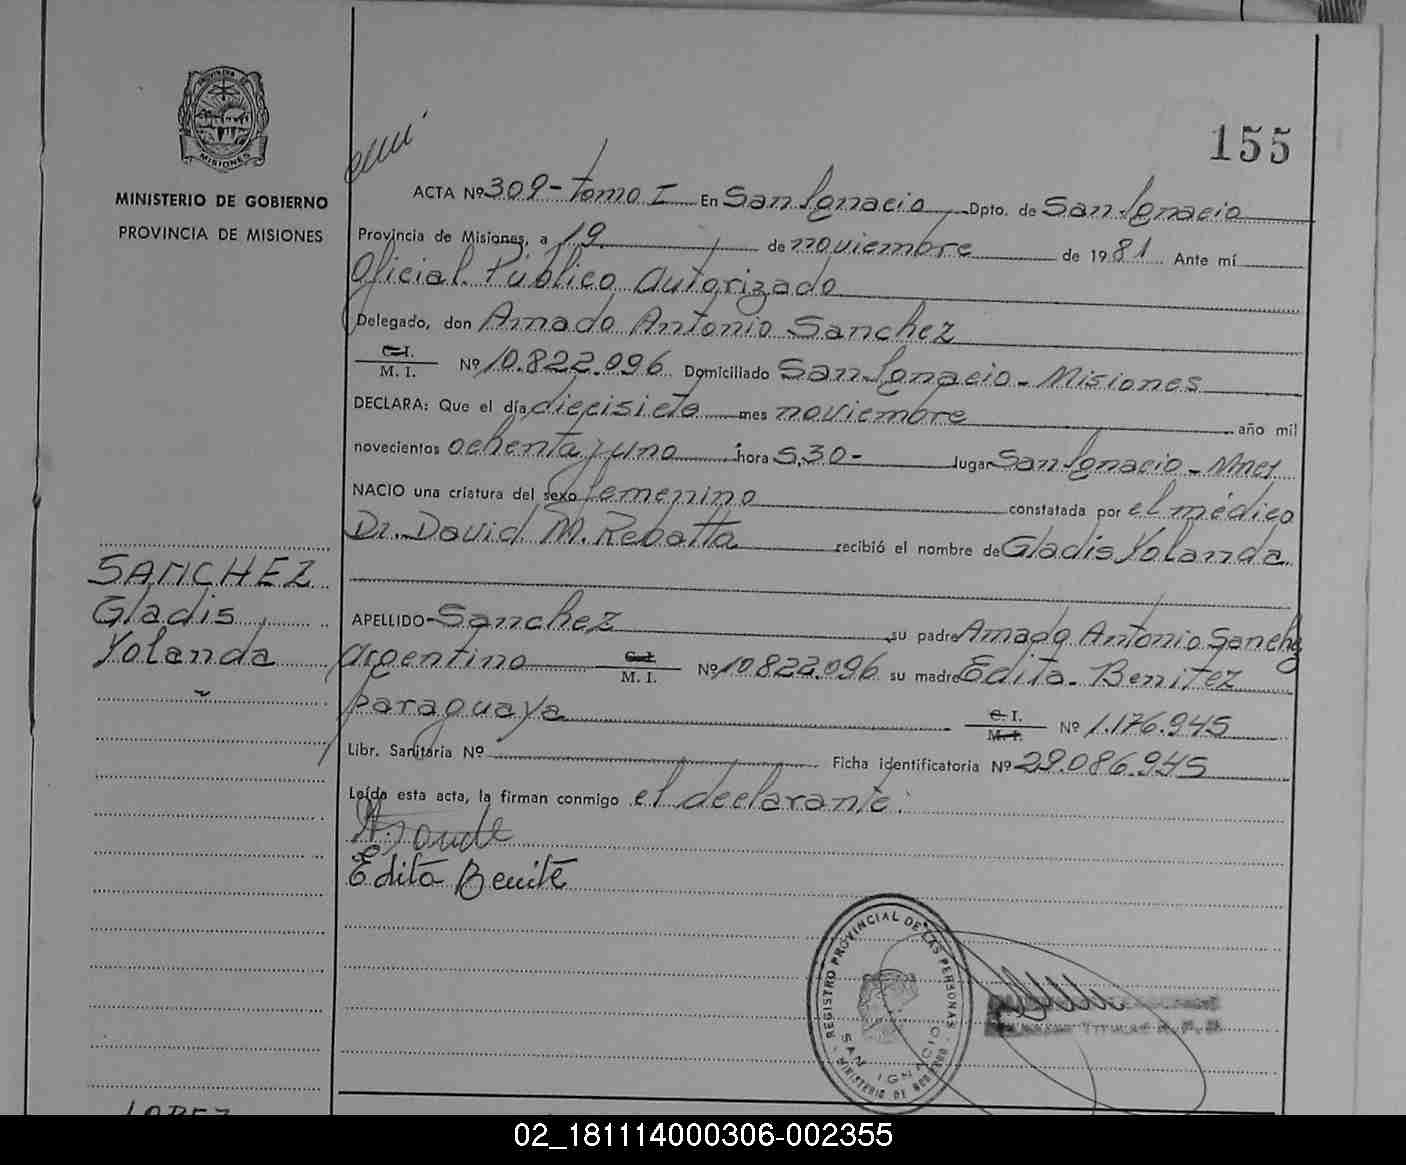 155
PROVINCIA DE
MISIONES
MINISTERIO DE GOBIERNO
PROVINCIA DE MISIONES
ACTA Nº 309 - Tomo I En San Ignacio Dpto. de San Ignacio
Provincia de Misiones, a 19 de noviembre de 1981 Ante mí
Oficial Público Autorizado
Delegado, don Amado Antonio Sanchez
C.I.
M. I. Nº 10.822.096 Domiciliado San Ignacio - Misiones
DECLARA: Que el día diecisiete mes noviembre año mil
novecientos ochenta y uno hora 5.30- lugar San Ignacio - Mnes
NACIO una criatura del sexo femenino constatada por el médico
Dr. David M. Rebatta recibió el nombre de Gladis Yolanda
SANCHEZ
Gladis
Yolanda
APELLIDO- Sanchez su padre Amado Antonio Sanchez
argentino C.I.
M. I. Nº 10.822.096 su madre Edita Benitez
paraguaya C. I.
M. I. Nº 1.176.945
Libr. Sanitaria Nº Ficha identificatoria Nº 29.086.945
Leída esta acta, la firman conmigo el declarante.
Edita Benite
REGISTRO PROVINCIAL DE LAS PERSONAS
SAN IGNACIO
MINISTERIO DE GOBIERNO
LOPEZ
02_181114000306-002355